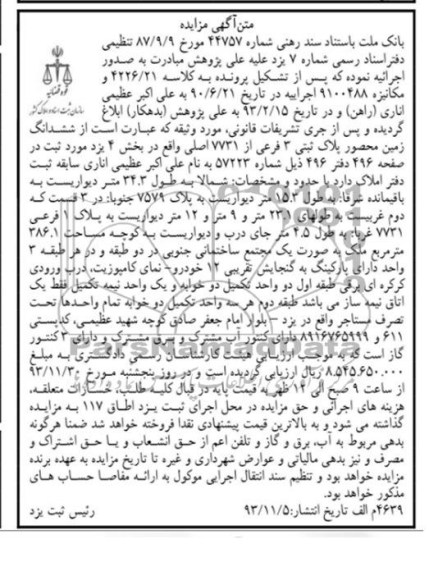 متن آگهی مزایده
بانک ملت باستناد سند رهنی شماره ۴۴۷۵۷ مورخ ۸۷/۹/۹ تنظیمی
دفتراسناد رسمی شماره ۷ یزد علیه علی پژوهش مبادرت به صدور
اجرائیه نموده که پس از تشکیل پرونده به کلاسه ۴۲۲۶/۲۱ و
مکانیزه ۹۱۰۰۴۸۸ اجراییه در تاریخ ۹۰/۶/۲۱ به علی اکبر عظیمی
اناری (راهن) و در تاریخ ۹۳/۲/۱۵ به علی پژوهش (بدهکار) ابلاغ
گردیده و پس از جری تشریفات قانونی، مورد وثیقه که عبارت است از ششدانگ
زمین محصور پلاک ثبتی ۳ فرعی از ۷۷۳۱ اصلی واقع در بخش ۴ یزد مورد ثبت در
صفحه ۴۹۶ دفتر ۴۹۶ ذیل شماره ۵۷۲۲۳ به نام علی اکبر عظیمی اناری سابقه ثبت
دفتر املاک دارد با حدود و مشخصات: شمالا به طول ۳۴.۳ متر دیواریست به
باقیمانده شرقا: به طول ۱۵.۳ متر دیواریست به پلاک ۷۵۷۹ جنوبا: در ۳ قسمت که
دوم غربیست به طولهای ۲۳.۱ متر و ۹ متر و ۱۲ متر دیواریست به پلاک ۱ فرعی
۷۷۳۱ غربا: به طول ۴.۵ متر جای درب و دیواریست به کوچه مساحت ۳۸۶.۱
مترمربع ملک به صورت یک مجتمع ساختمانی جنوبی در دو طبقه و در هر طبقه ۳
واحد دارای پارکینگ به گنجایش تقریبی ۱۲ خودرو- نمای کامپوزیت، درب ورودی
کرکره ای برقی طبقه اول دو واحد تکمیل دو خوابه و یک واحد نیمه تکمیل فقط یک
اتاق نیمه ساز می باشد طبقه دوم هر سه واحد تکمیل دو خوابه تمام واحدها تحت
تصرف مستاجر واقع در یزد – بلوار امام جعفر صادق کوچه شهید عظیمی، کدپستی
۶۱۱ و ۸۹۱۶۷۶۵۹۹۹ دارای کنتور آب مشترک و برق مشترک و دارای ۳ کنتور
گاز است که به موجب ارزیابی هیئت کارشناسان رسمی دادگستری به مبلغ
۸.۵۴۵.۶۵۰.۰۰۰ ریال ارزیابی گردیده است و در روز پنجشنبه مورخ ۹۳/۱۱/۳۰
از ساعت ۹ صبح الی ۱۲ ظهر به قیمت پایه در قبال کلیه طلب، خسارات متعلقه،
هزینه های اجرائی و حق مزایده در محل اجرای ثبت یزد اطاق ۱۱۷ به مزایده
گذاشته می شود و به بالاترین قیمت پیشنهادی نقدا فروخته خواهد شد ضمنا هرگونه
بدهی مربوط به آب، برق و گاز و تلفن اعم از حق انشعاب و یا حق اشتراک و
مصرف و نیز بدهی مالیاتی و عوارض شهرداری و غیره تا تاریخ مزایده به عهده برنده
مزایده خواهد بود و تنظیم سند انتقال اجرایی موکول به ارائه مفاصا حساب های
مذکور خواهد بود.
۴۶۳۹م الف تاریخ انتشار:۹۳/۱۱/۵ رئیس ثبت یزد